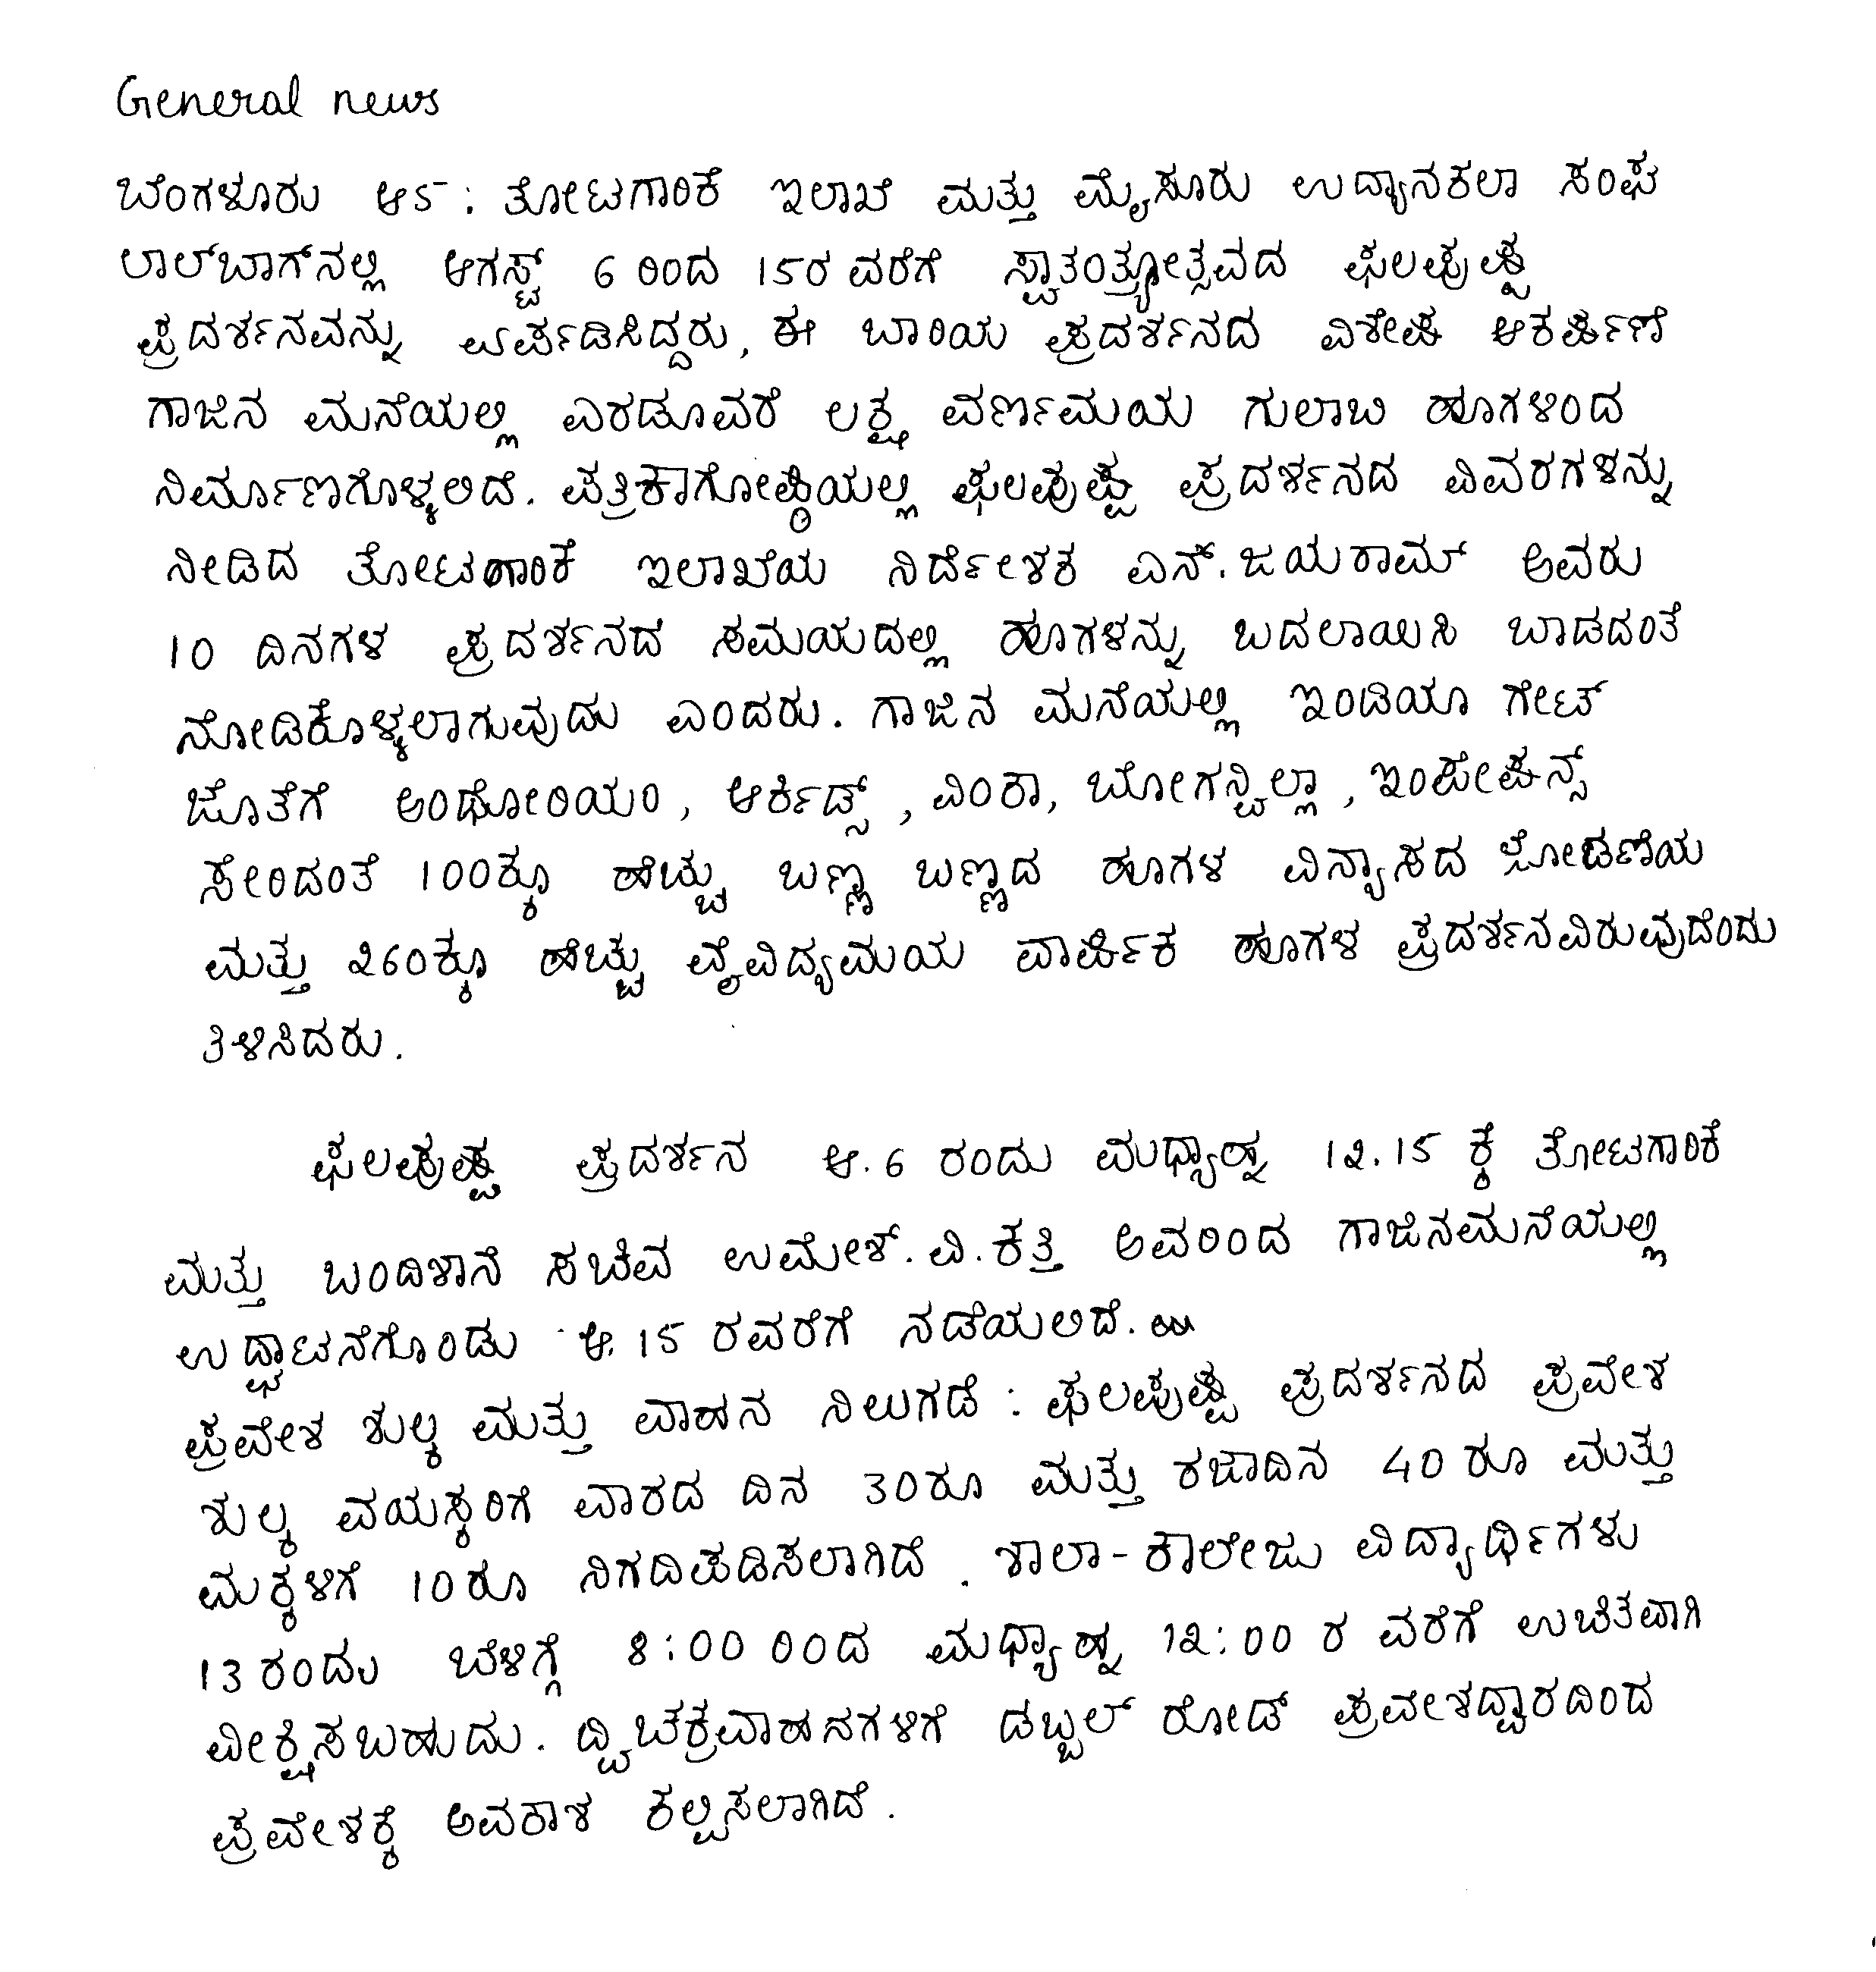 General news
ಬೆಂಗಳೂರು ಆ5 : ತೋಟಗಾರಿಕೆ ಇಲಾಖೆ ಮತ್ತು ಮೈಸೂರು ಉದ್ಯಾನಕಲಾ ಸಂಘ
ಲಾಲ್‌ಬಾಗ್‌ನಲ್ಲಿ ಆಗಸ್ಟ್ 6 ರಿಂದ 15ರ ವರೆಗೆ ಸ್ವಾತಂತ್ರ್ಯೋತ್ಸವದ ಫಲಪುಷ್ಪ
ಪ್ರದರ್ಶನವನ್ನು ಏರ್ಪಡಿಸಿದ್ದರು, ಈ ಬಾರಿಯ ಪ್ರದರ್ಶನದ ವಿಶೇಷ ಆಕರ್ಷಣೆ
ಗಾಜಿನ ಮನೆಯಲ್ಲಿ ಎರಡೂವರೆ ಲಕ್ಷ ವರ್ಣಮಯ ಗುಲಾಬಿ ಹೂಗಳಿಂದ
ನಿರ್ಮಾಣಗೊಳ್ಳಲಿದೆ. ಪತ್ರಿಕಾಗೋಷ್ಠಿಯಲ್ಲಿ ಫಲಪುಷ್ಪ ಪ್ರದರ್ಶನದ ವಿವರಗಳನ್ನು
ನೀಡಿದ ತೋಟಗಾರಿಕೆ ಇಲಾಖೆಯ ನಿರ್ದೇಶಕ ಎನ್.ಜಯರಾಮ್ ಅವರು
10 ದಿನಗಳ ಪ್ರದರ್ಶನದ ಸಮಯದಲ್ಲಿ ಹೂಗಳನ್ನು ಬದಲಾಯಿಸಿ ಬಾಡದಂತೆ
ನೋಡಿಕೊಳ್ಳಲಾಗುವುದು ಎಂದರು. ಗಾಜಿನ ಮನೆಯಲ್ಲಿ ಇಂಡಿಯಾ ಗೇಟ್
ಜೊತೆಗೆ ಅಂಥೋರಿಯಂ, ಆರ್ಕಿಡ್ಸ್, ವಿಂಕಾ, ಬೋಗನ್ವಿಲ್ಲಾ, ಇಂಪೇಷನ್ಸ್
ಸೇರಿದಂತೆ 100ಕ್ಕೂ ಹೆಚ್ಚು ಬಣ್ಣ ಬಣ್ಣದ ಹೂಗಳ ವಿನ್ಯಾಸದ ಜೋಡಣೆಯ
ಮತ್ತು 260ಕ್ಕೂ ಹೆಚ್ಚು ವೈವಿದ್ಯಮಯ ವಾರ್ಷಿಕ ಹೂಗಳ ಪ್ರದರ್ಶನವಿರುವುದೆಂದು
ತಿಳಿಸಿದರು.
ಫಲಪುಷ್ಪ ಪ್ರದರ್ಶನ ಆ.6 ರಂದು ಮಧ್ಯಾಹ್ನ 12.15 ಕ್ಕೆ ತೋಟಗಾರಿಕೆ
ಮತ್ತು ಬಂದಿಖಾನೆ ಸಚಿವ ಉಮೇಶ್.ವಿ.ಕತ್ತಿ ಅವರಿಂದ ಗಾಜಿನಮನೆಯಲ್ಲಿ
ಉದ್ಘಾಟನೆಗೊಂಡು ಆ.15 ರವರೆಗೆ ನಡೆಯಲಿದೆ.
ಪ್ರವೇಶ ಶುಲ್ಕ ಮತ್ತು ವಾಹನ ನಿಲುಗಡೆ : ಫಲಪುಷ್ಪ ಪ್ರದರ್ಶನದ ಪ್ರವೇಶ
ಶುಲ್ಕ ವಯಸ್ಕರಿಗೆ ವಾರದ ದಿನ 30ರೂ ಮತ್ತು ರಜಾದಿನ 40 ರೂ ಮತ್ತು
ಮಕ್ಕಳಿಗೆ 10ರೂ ನಿಗದಿಪಡಿಸಲಾಗಿದೆ. ಶಾಲಾ-ಕಾಲೇಜು ವಿದ್ಯಾರ್ಥಿಗಳು
13ರಂದು ಬೆಳಿಗ್ಗೆ 8:00 ರಿಂದ ಮಧ್ಯಾಹ್ನ 12:00 ರ ವರೆಗೆ ಉಚಿತವಾಗಿ
ವೀಕ್ಷಿಸಬಹುದು. ದ್ವಿಚಕ್ರವಾಹನಗಳಿಗೆ ಡಬ್ಬಲ್ ರೋಡ್ ಪ್ರವೇಶದ್ವಾರದಿಂದ
ಪ್ರವೇಶಕ್ಕೆ ಅವಕಾಶ ಕಲ್ಪಿಸಲಾಗಿದೆ.